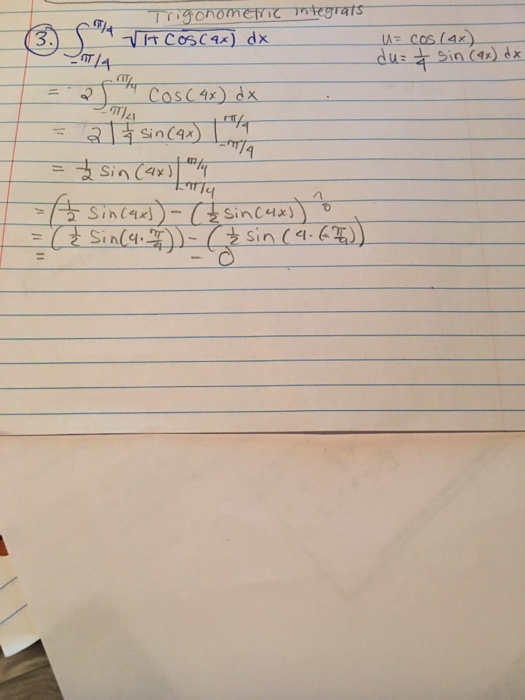 Trigonometric Integrals
3. ∫_{-π/4}^{π/4} √1+cos(4x) dx
u = cos(4x)
du = 1/4 sin(4x) dx
= 2∫_{-π/4}^{π/4} cos(4x) dx
= 2 | 1/4 sin(4x) |_{-π/4}^{π/4}
= 1/2 sin(4x) |_{-π/4}^{π/4}
= (1/2 sin(4x)) - (1/2 sin(4x))
= (1/2 sin(4·π/4)) - (1/2 sin(4·(-π/4))
= - 0